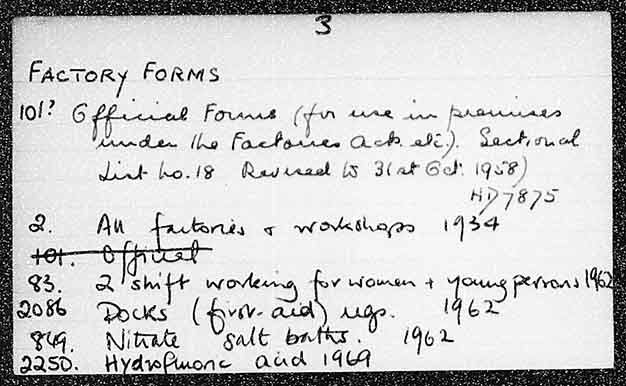 3
FACTORY FORMS
101? Official Forms (for use in premises
under the Factories Acts etc). Sectional
List No. 18 Revised to 31st Oct. 1958)
HD7875
2. All factories + workshops 1934
101. Official
83. 2 shift working for women + young persons 1962
2086 Docks (first-aid) regs. 1962
849. Nitrate salt baths. 1962
2250. Hydrofluoric acid 1969